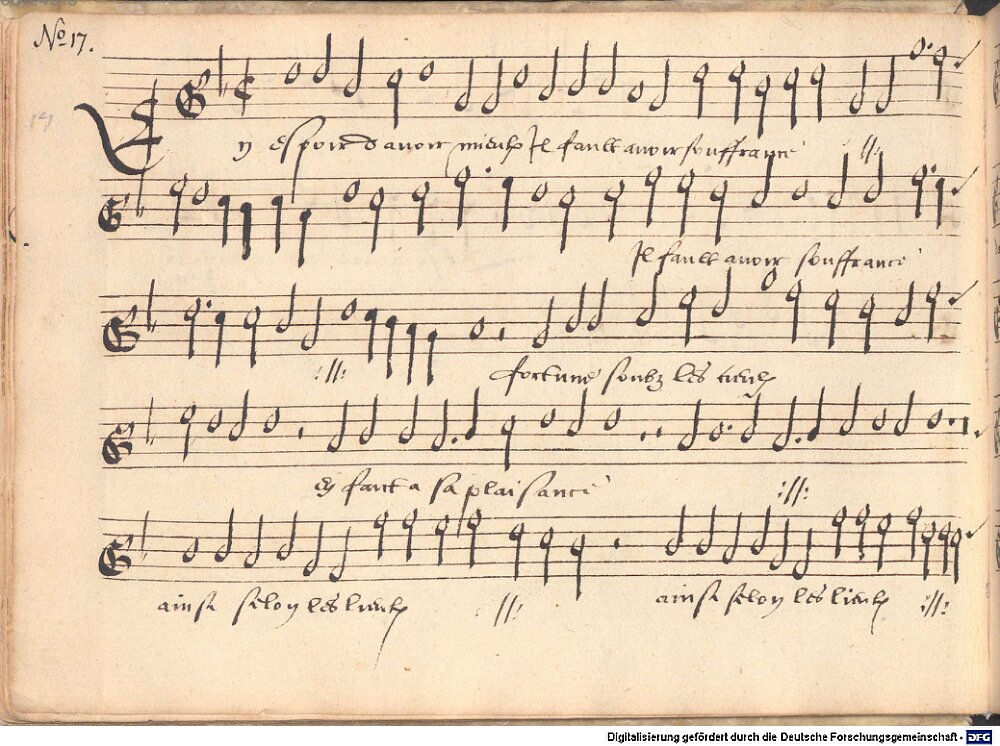 No 17.
En espoir d avoir mieulx Il fault avoir souffrance :||:
Il fault avoir souffrance
:||: fortune soubz les cieulx
en faict a sa plaisance :||:
ainsi selon les lieulx :||: ainsi selon les lieulx :||:
Digitalisierung gefördert durch die Deutsche Forschungsgemeinschaft - DFG